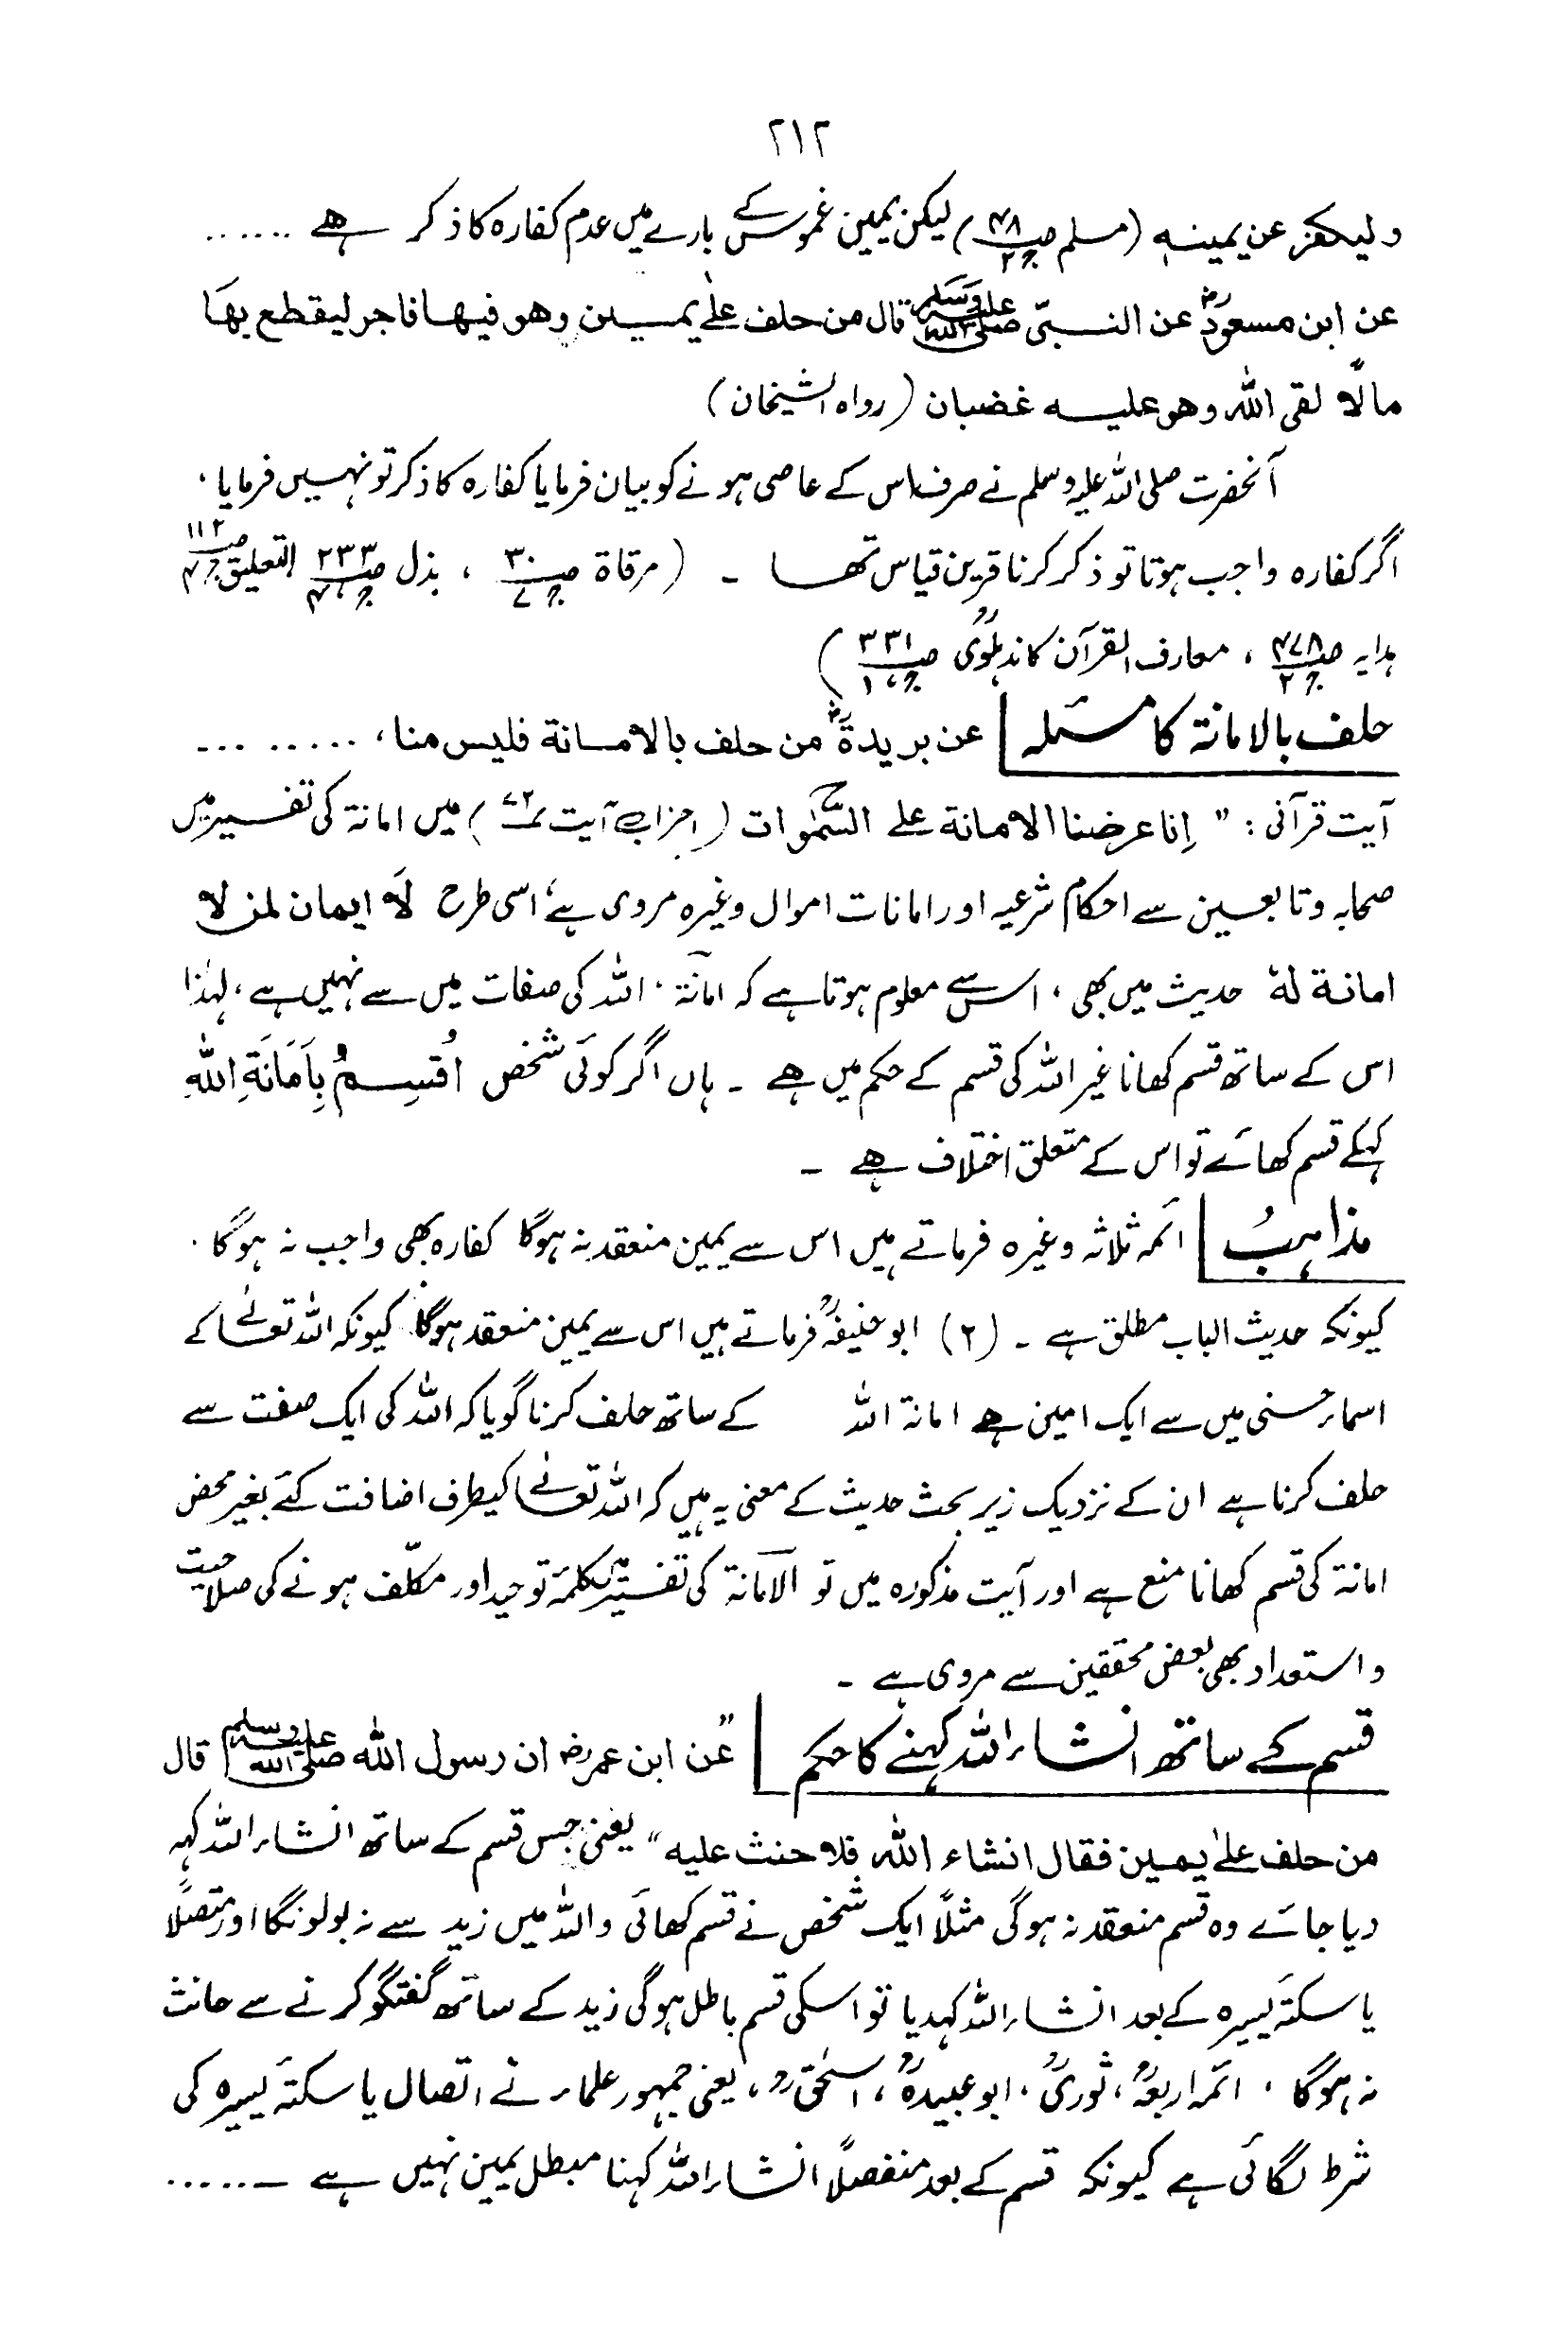 ۲۱۲
ولیکفر عن یمینہ (مسلم صـ۴۸ جـ۲) لیکن یمین غموس کے بارے میں عدم کفارہ کا ذکر ہے ......
عن ابن مسعودؓ عن النبیّ صلی اللہ علیہ وسلم قال من حلف علیٰ یمین وھو فیھا فاجر لیقطع بھَا
مالًا لقی اللہ وھو علیہ غضبان (رواہ الشیخان)
آنحضرت صلی اللہ علیہ وسلم نے صرف اس کے عاصی ہونے کو بیان فرمایا کفارہ کا ذکر تو نہیں فرمایا ۰
اگر کفارہ واجب ہوتا تو ذکر کرنا قرین قیاس تھا ـ (مرقاۃ صـ۳۰ جـ۷ ، بذل صـ۲۳۳ جـ۴ التعلیق صـ۱۱۲ جـ۴
ہدایہ صـ۴۷۸ جـ۲ ، معارف القرآن کاندہلویؒ صـ۳۳۱ جـ۱)
حلف بالامانۃ کا مسئلہ | عن بریدۃؓ من حلف بالامانة فلیس منا، .........
آیت قرآنی : " اِنا عرضنا الامانة علی السَّمٰوات (احزاب آیت ۷۲) میں امانۃ کی تفسیر میں
صحابہ وتابعین سے احکام شرعیہ اور امانات اموال وغیرہ مروی ہے، اسی طرح لَا ایمان لمن لا
امانة لهٗ حدیث میں بھی، اس سے معلوم ہوتا ہے کہ امانۃ ، اللہ کی صفات میں سے نہیں ہے ، لہٰذا
اس کے ساتھ قسم کھانا غیر اللہ کی قسم کے حکم میں ہے ـ ہاں اگر کوئی شخص اُقسِمُ بِاَمَانَةِ اللهِ
کہکے قسم کھائے تو اس کے متعلق اختلاف ہے ـ
مذاہبُ | ائمہ ثلاثہ وغیرہ فرماتے ہیں اس سے یمین منعقد نہ ہوگا کفارہ بھی واجب نہ ہوگا ۰
کیونکہ حدیث الباب مطلق ہے ـ (۲) ابوحنیفہؒ فرماتے ہیں اس سے یمین منعقد ہوگا کیونکہ اللہ تعالیٰ کے
اسماء حسنی میں سے ایک امین ہے امانۃ اللہ کے ساتھ حلف کرنا گویا کہ اللہ کی ایک صفت سے
حلف کرنا ہے ان کے نزدیک زیر بحث حدیث کے معنی یہ ہیں کہ اللہ تعالےٰ کیطرف اضافت کئے بغیر محض
امانۃ کی قسم کھانا منع ہے اور آیت مذکورہ میں تو الامانۃ کی تفسیر میں کلمۂ توحید اور مکلّف ہونے کی صلاحیت
واستعداد بھی بعض محققین سے مروی ہے ـ
قسم کے ساتھ انشاء اللہ کہنے کا حکم | "عن ابن عمرؓ ان رسول اللہ صلی اللہ علیہ وسلم قال
من حلف علیٰ یمین فقال انشاء اللہ فلا حنث علیہ" یعنی جس قسم کے ساتھ انشاء اللہ کہہ
دیا جائے وہ قسم منعقد نہ ہوگی مثلًا ایک شخص نے قسم کھائی واللہ میں زید سے نہ بولونگا اور متصلًا
یا سکتۂ یسیرہ کے بعد انشاء اللہ کہدیا تو اسکی قسم باطل ہوگی زید کے ساتھ گفتگو کرنے سے حانث
نہ ہوگا ۰ ائمہ اربعہؒ ، ثوریؒ ، ابوعبیدہؒ ، اسحٰقؒ ، یعنی جمہور علماء نے اتصال یا سکتۂ یسیرہ کی
شرط لگائی ہے کیونکہ قسم کے بعد منفصلًا انشاء اللہ کہنا مبطل یمین نہیں ہے ـ......